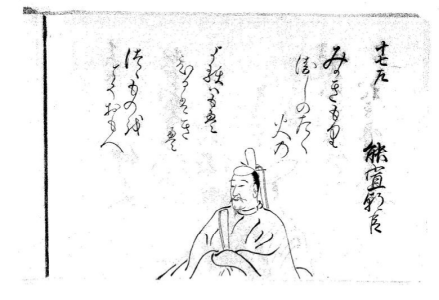 十七
能宣朝臣
みかきもり
衛しのたく
火の
よるはもえ
ひるはきえ
つゝものを
こそおもへ